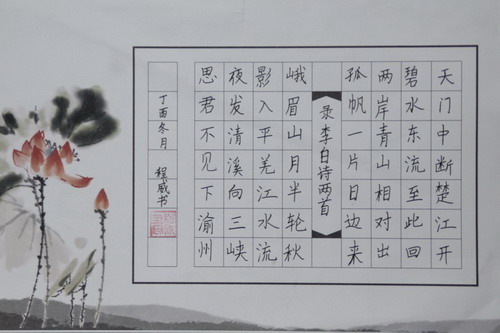 天门中断楚江开
碧水东流至此回
两岸青山相对出
孤帆一片日边来
录李白诗两首
峨眉山月半轮秋
影入平羌江水流
夜发清溪向三峡
思君不见下渝州
丁酉冬月 程威书